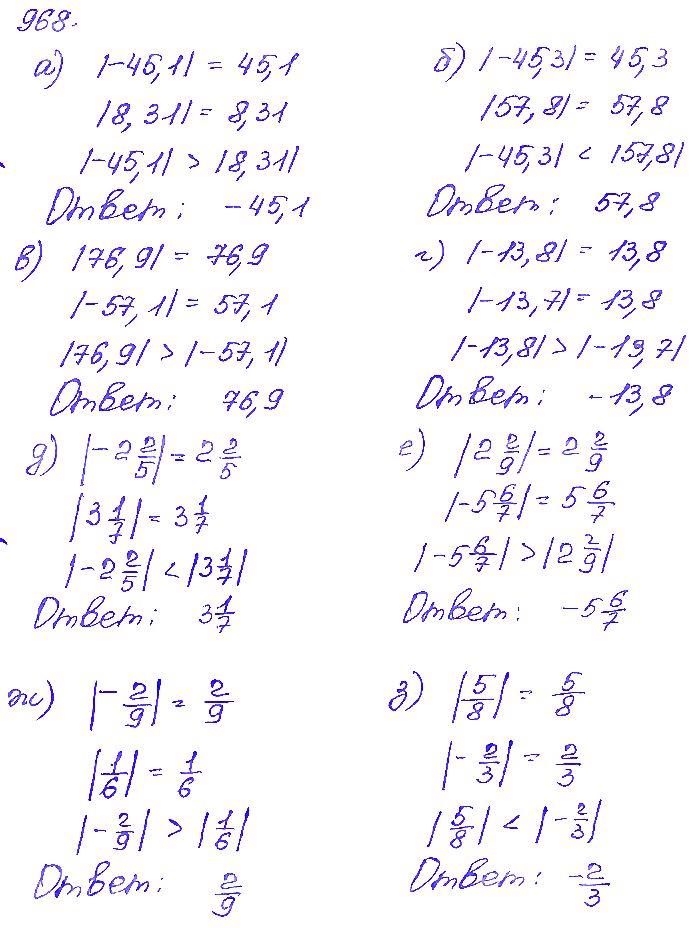 968.
а) |-45,1| = 45,1
|8,31| = 8,31
|-45,1| > |8,31|
Ответ: -45,1
б) |-45,3| = 45,3
|57,8| = 57,8
|-45,3| < |57,8|
Ответ: 57,8
в) |76,9| = 76,9
|-57,1| = 57,1
|76,9| > |-57,1|
Ответ: 76,9
г) |-13,8| = 13,8
|-13,7| = 13,8
|-13,8| > |-13,7|
Ответ: -13,8
д) |-2 2/5| = 2 2/5
|3 1/7| = 3 1/7
|-2 2/5| < |3 1/7|
Ответ: 3 1/7
е) |2 2/9| = 2 2/9
|-5 6/7| = 5 6/7
|-5 6/7| > |2 2/9|
Ответ: -5 6/7
ж) |-2/9| = 2/9
|1/6| = 1/6
|-2/9| > |1/6|
Ответ: 2/9
з) |5/8| = 5/8
|-2/3| = 2/3
|5/8| < |-2/3|
Ответ: -2/3